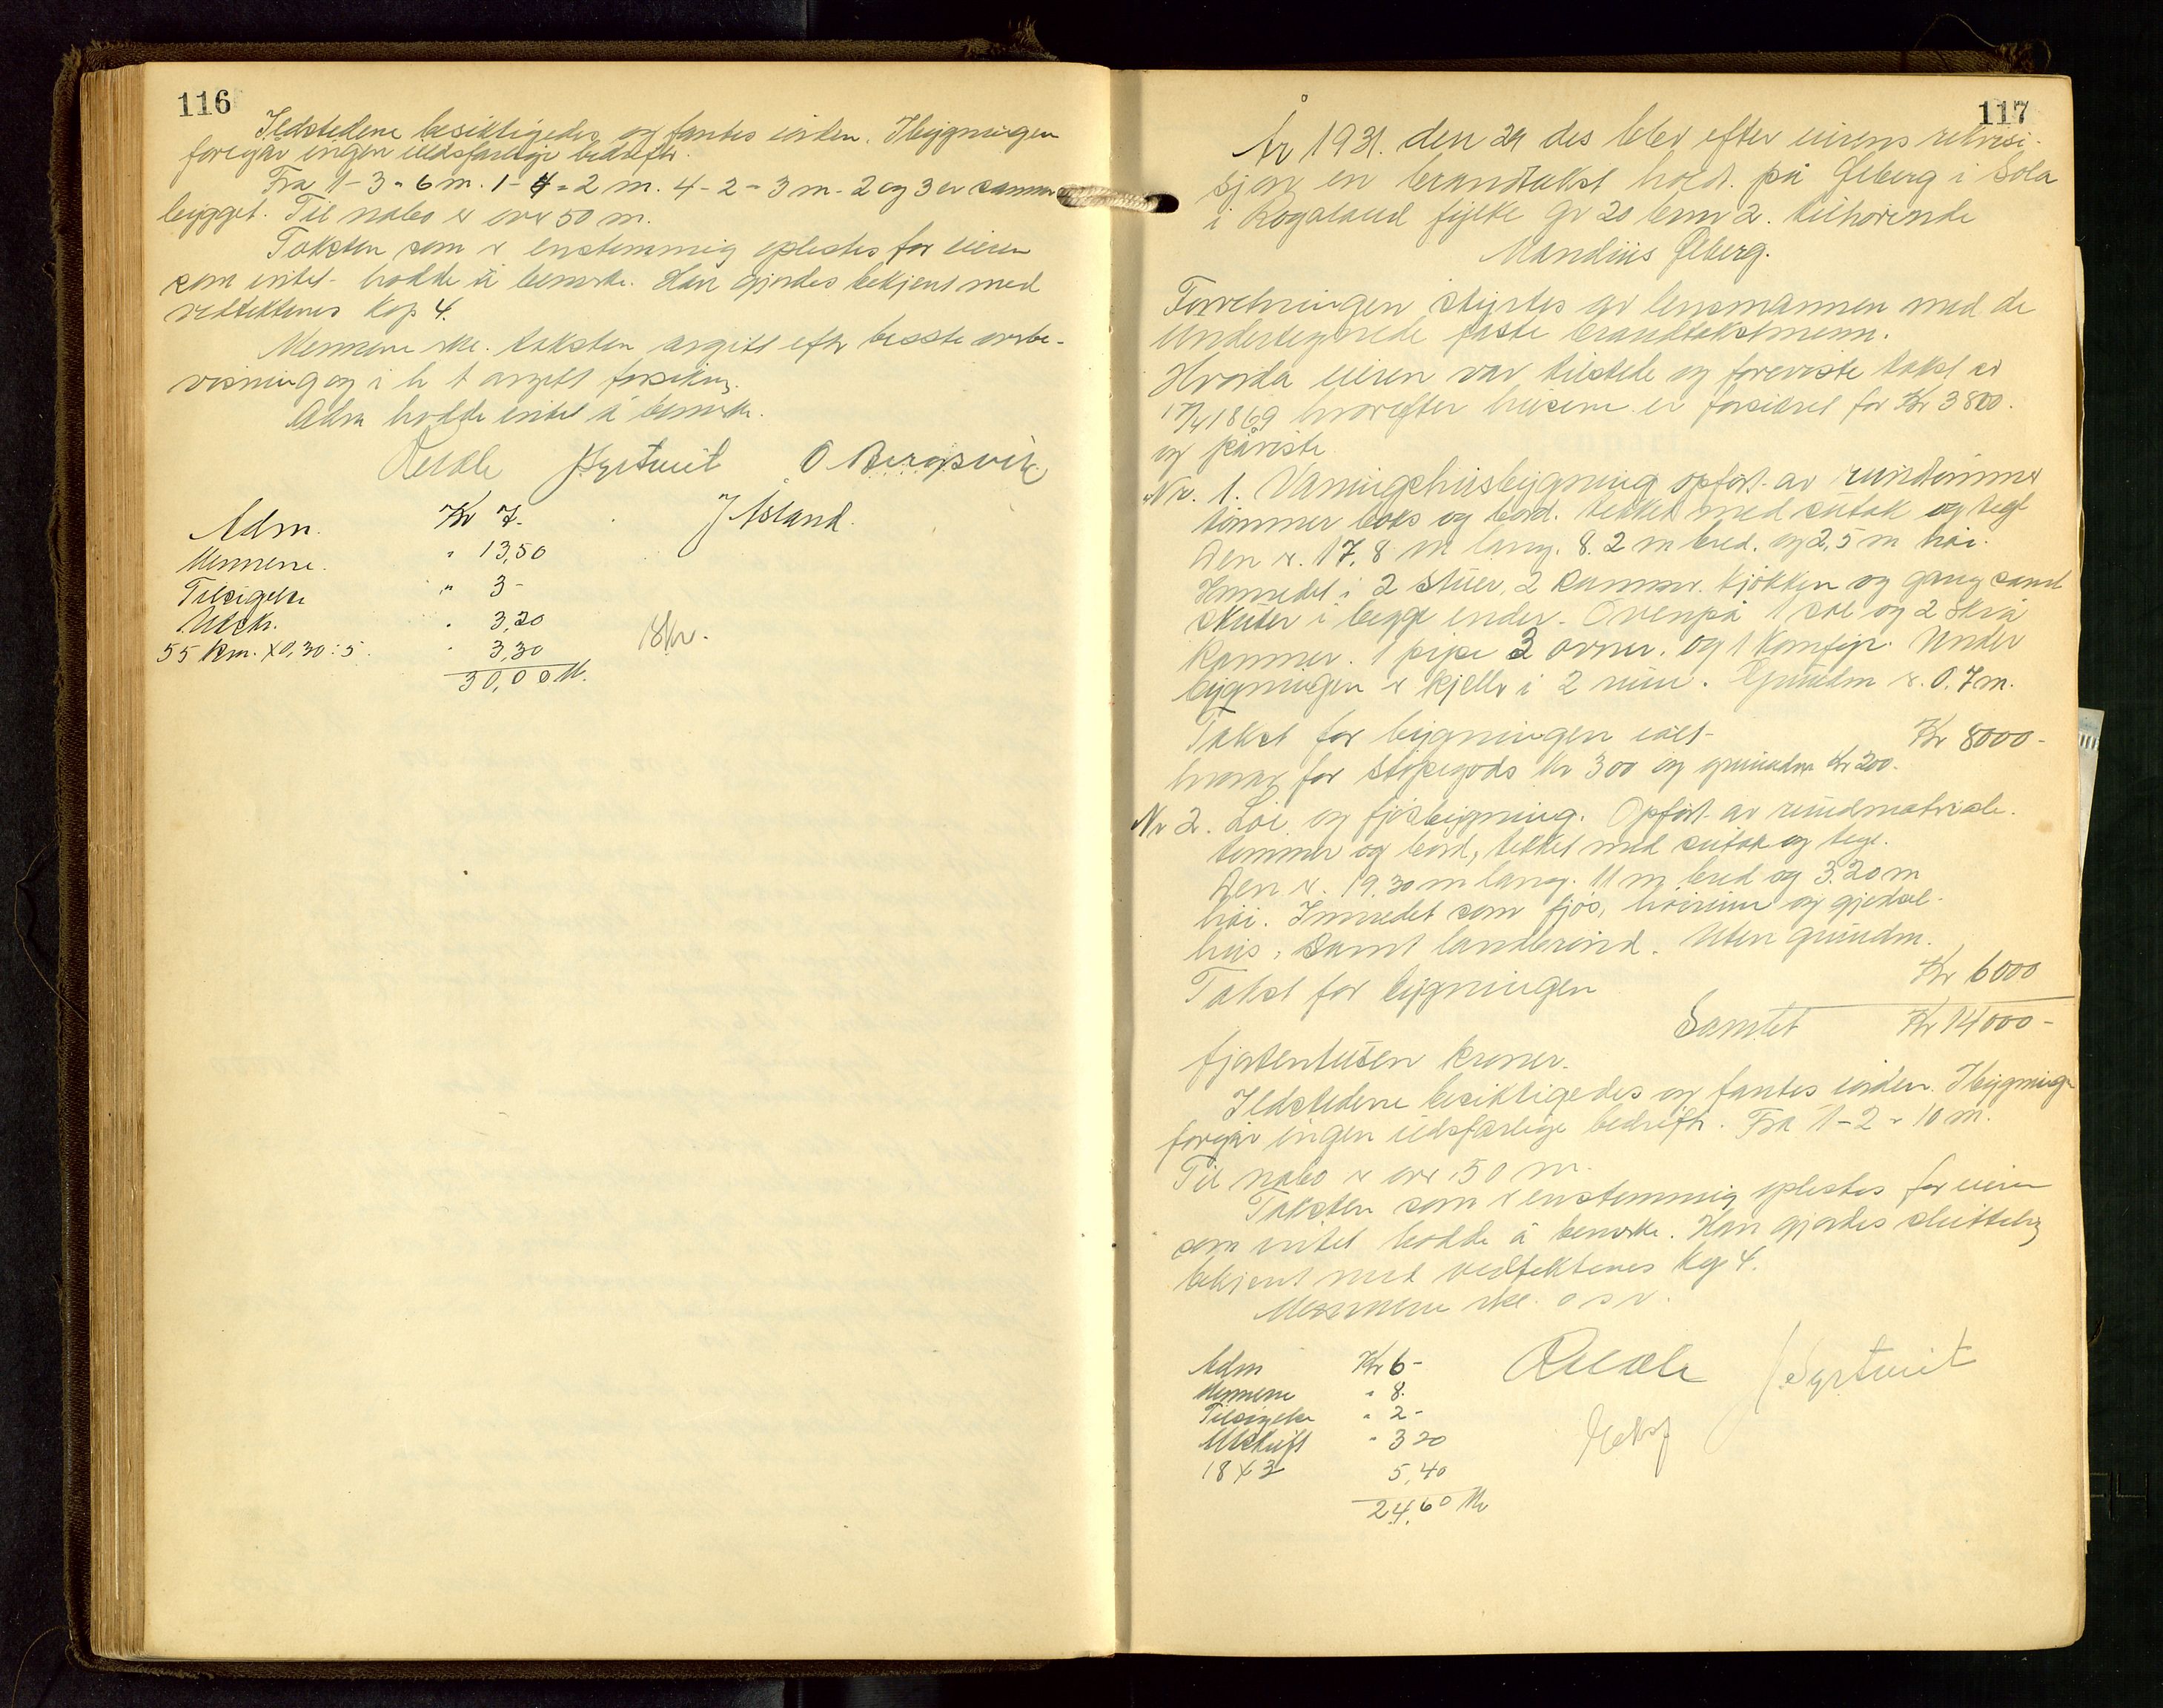 116
Ildstedene besiktigedes og fantes i orden. I bygningen
foregår ingen ildsfarlige bedrifter.
Fra 1-3 = 6 m. 1-4 = 2 m. 4-2 = 3 m. 2 og 3 er sammen
bygget. Til nabo er over 50 m.
Taksten som er enstemmig oplestes for eieren
som intet hadde å bemerke. Han gjordes bekjent med
vedtektenes kap 4.
Mennene erkl. taksten avgitt efter besste overbe-
visning og i h t avgitt forsikring.
Adm hadde intet å bemerke.
O Bergsvik
J Åsland
Adm. Kr 7-
Mennene. " 13,50
Tilsigelse " 3-
Utskr. " 3,20
55 km. x 0,30 : 5. " 3,30
18 kr.
30,00 kr.
117
År 1931. den 29 des blev efter eierens rekvisi-
sjon en brandtakst holdt på Ølberg i Sola
i Rogaland fylke gr 20 bnr 2. tilhørende
Mandius Ølberg.
Forretningen styrtes av lensmannen med de
undertegnede faste brandtakstmenn.
Hvorda eieren var tilstede og foreviste takst av
1869 hvorefter husene er forsikret for Kr 3800.
og påviste
Nr. 1. Våningshusbygning opført av
tømmer boks og bord. tekket med sutak og tegl
Den er 17,8 m lang. 8.2 m bred. og 2,5 m høi.
Innredet i 2 stuer, 2 kammer. kjøkken og gang samt
skuter i begge ender. Ovenpå 1 sal og 2 skrå
kammer. 1 pipe 3 ovner. og 1 komfyr. Under
bygningen er kjeller i 2 rum. Grundm er 0.7 m.
Takst for bygningen ialt Kr 8000-
hvorav for støpegods kr 300 og grundm kr 200.
Nr 2. Løe og fjøsbygning. Opført av rundmateriale.
tømmer og bord, tekket med sutak og tegl.
Den er 19.30 m lang. 11 m bred og 3.20 m
høi. Innredet som fjøs, høirum og gjødsel-
hus, samt landbrind. Uten grundm.
Takst for bygningen Kr 6000
Samlet Kr 14000-
fjortentusen kroner.
Ildstedene besiktigedes og fantes i orden. I bygningen
foregår ingen ildsfarlige bedrifter. Fra 1-2 = 10 m.
Til nabo er over 50 m.
Taksten som er enstemmig oplestes for eieren
som intet hadde å bemerke. Han gjordes skriftelig
bekjent med vedtektenes kap 4.
Mennene erkl. o s v.
Adm Kr 6-
Mennene " 8.
Tilsigelse " 2-
Utskrift " 3 20
18 x 3 5,40
24,60 kr